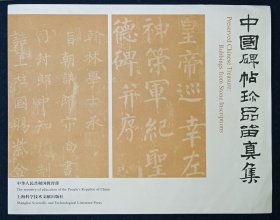 中國碑帖珍品留真集
Preserved Chinese Treasure:
Rubbings from Stone Inscriptions
皇帝巡幸左
神策軍紀聖
德碑并序
翰林學士承
旨朝議郎守
司封郎中知
柱國賜紫金
中华人民共和国教育部
The ministry of education of the People's Republic of China
上海科学技术文献出版社
Shanghai Scientific and Technological Literature Press